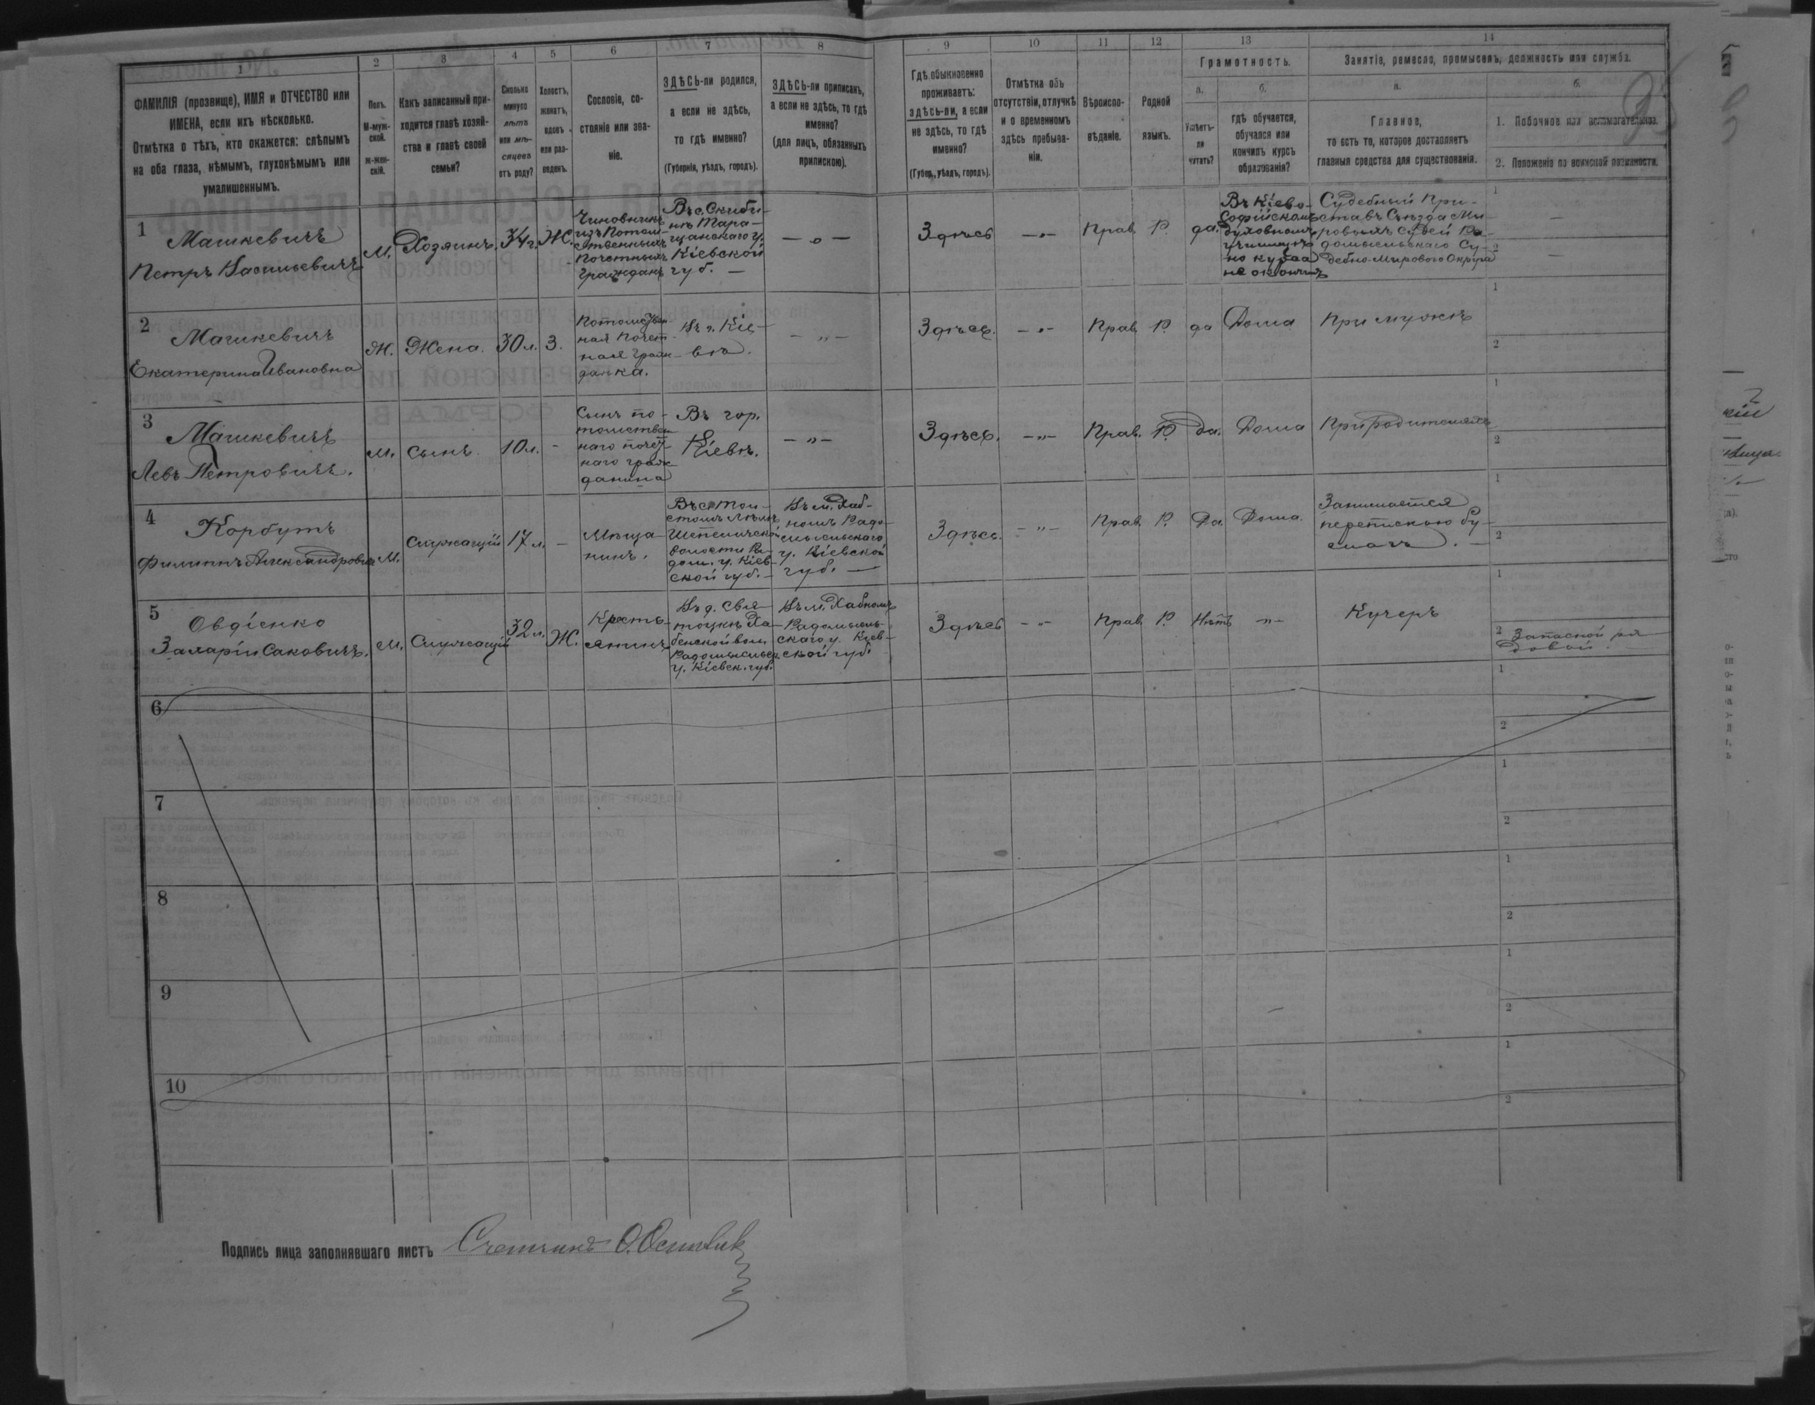 1 2 3 4 5 6 7 8 9 10 11 12 13 14
ФАМИЛІЯ (прозвище), ИМЯ и ОТЧЕСТВО или
ИМЕНА, если ихъ нѣсколько.
Отмѣтка о тѣхъ, кто окажется: слѣпымъ
на оба глаза, нѣмымъ, глухонѣмымъ или
умалишеннымъ.
Полъ.
М-муж-
ской.
ж-жен-
скій.
Какъ записанный при-
ходится главѣ хозяй-
ства и главѣ своей
семьи?
Сколько
минуло
лѣтъ
или мѣ-
сяцевъ
отъ роду?
Холостъ,
женатъ,
вдовъ
или раз-
веденъ.
Сословіе, со-
стояніе или зва-
ніе.
ЗДѢСЬ-ли родился,
а если не здѣсь,
то гдѣ именно?
(Губернія, уѣздъ, городъ).
ЗДѢСЬ-ли приписанъ,
а если не здѣсь, то гдѣ
именно?
(для лицъ, обязанныхъ
припискою).
Гдѣ обыкновенно
проживаетъ:
здѣсь-ли, а если
не здѣсь, то гдѣ
именно?
(Губер., уѣздъ, городъ).
Отмѣтка объ
отсутствіи, отлучкѣ
и о временномъ
здѣсь пребыва-
ніи.
Вѣроиспо-
вѣданіе.
Родной
языкъ.
Грамотность.
а.
Умѣетъ-
ли
читать?
б.
гдѣ обучается,
обучался или
кончилъ курсъ
образованія?
Занятіе, ремесло, промыселъ, должность или служба.
а.
Главное,
то есть то, которое доставляетъ
главныя средства для существованія.
б.
1. Побочное или вспомогательное.
2. Положеніе по воинской повинности.
1
Машкевичъ
Петръ Васильевичъ
М.
Хозяинъ.
34 г.
Ж.
Чиновникъ
изъ Потом-
ственныхъ
Почетныхъ
Гражданъ
Въ с. Скиби-
нѣ Тара-
щанскаго у.
Кіевской
губ. —
— „ —
Здѣсь
— „ —
Прав
Р.
да.
Въ Кіево-
Софійскомъ
духовномъ
училищѣ
но курса
не окончилъ
Судебный При-
ставъ Съѣзда Ми-
ровыхъ Судей Ра-
домысльскаго Су-
дебно-Мирового Округа
1 —
2 —
2
Машкевичъ
Екатерина Ивановна
Ж.
Жена.
30 л.
З.
Потомствен
ная Почет-
ная Граж-
данка.
Въ г. Кіе-
вѣ.
— „ —
Здѣсь.
— „ —
Прав.
Р.
да
Дома
При мужѣ
1
2
3
Машкевичъ
Левъ Петровичъ.
М.
Сынъ.
10 л.
-
Сынъ по-
томствен
наго почет-
наго граж-
данина
Въ гор.
Кіевѣ.
— „ —
Здѣсь.
— „ —
Прав.
Р.
Да.
Дома
При родителяхъ
1
2
4
Корбутъ
Филиппъ Александровичъ
М.
Служащій
17 л.
—
Мѣща-
нинъ.
Шепеличской
волости Ра-
дом. у. Кіев-
ской губ.
Въ м. Хаб-
номъ Радо-
мысльскаго
у. Кіевской
губ. —
Здѣсь.
— „ —
Прав
Р.
Да
Дома.
Занимается
перепискою бу-
магъ. —
1
2
5
Овдіенко
Захарій Саковичъ.
М.
Служащій
32 л.
Ж.
Кресть-
янинъ
Ха-
бенской вол.
Радомысльск
у. Кіевск. губ.
Въ м. Хабномъ
Радомысль-
скаго у. Кіев-
ской губ.
Здѣсь
— „ —
Прав
Р.
Нѣтъ
— „ —
Кучеръ
1
2 Запасной ря-
довой.
6
1
2
7
1
2
8
1
2
9
1
2
10
1
2
Подпись лица заполнявшаго листъ Счетчикъ